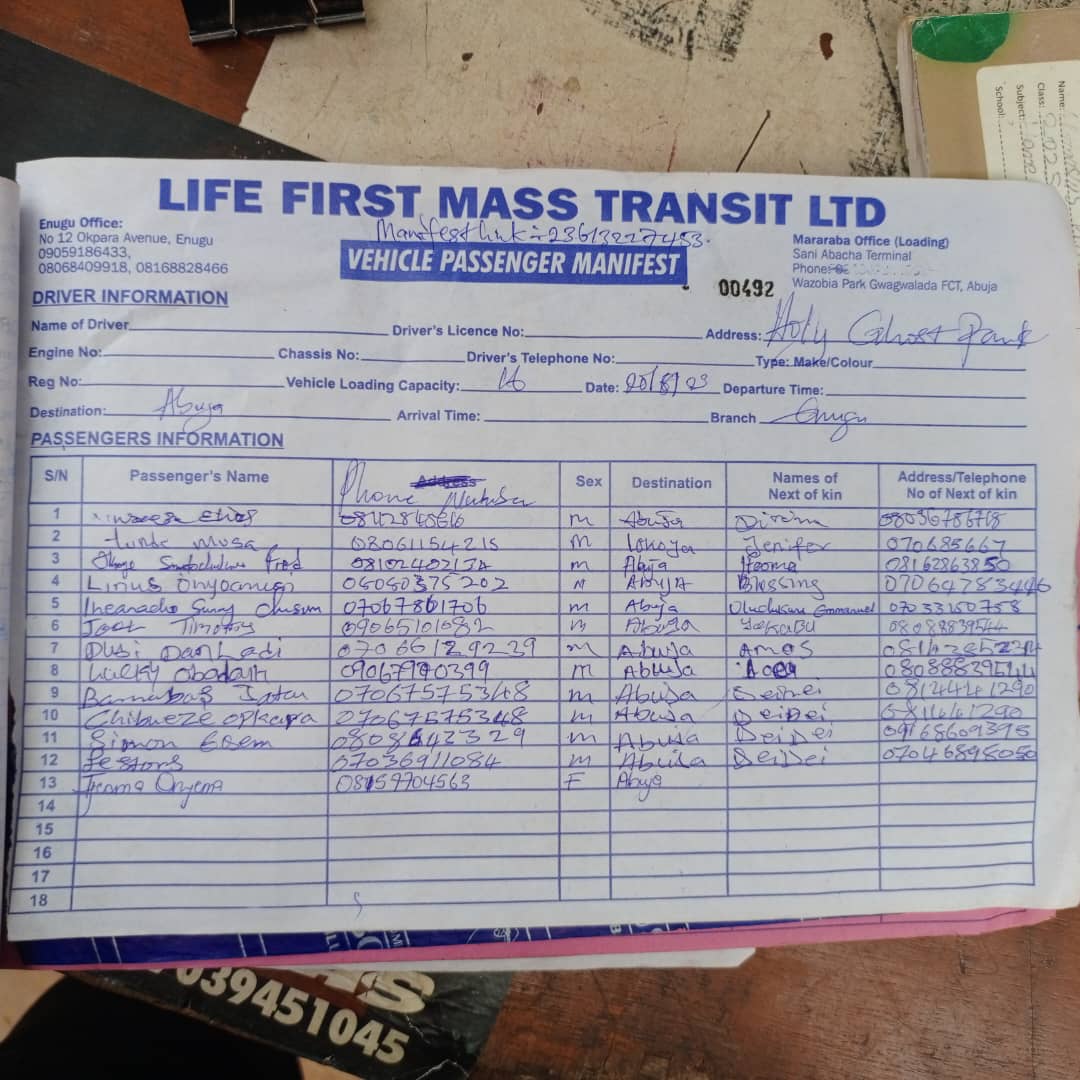 LIFE FIRST MASS TRANSIT LTD
Enugu Office:
No 12 Okpara Avenue, Enugu
09059186433,
08068409918, 08168828466
Manifest link :- 236132227453.
VEHICLE PASSENGER MANIFEST
00492
Mararaba Office (Loading)
Sani Abacha Terminal
Phone:
Wazobia Park Gwagwalada FCT, Abuja
DRIVER INFORMATION
Name of Driver Driver's Licence No: Address: Holy Ghost Park
Engine No: Chassis No: Driver's Telephone No: Type: Make/Colour
Reg No: Vehicle Loading Capacity: Date: 20/8/23 Departure Time:
Destination: Abuja Arrival Time: Branch Enugu
PASSENGERS INFORMATION
S/N Passenger's Name Address Phone Number Sex Destination Names of Next of kin Address/Telephone No of Next of kin
1 Elias m Abuja
2 Tunde Musa 08061154215 m Lokoja Jenifer 070685667
3 Fred m Abuja Ifeoma 08162863850
4 Linus 08080375202 M Abuja Blessing 07064783446
5 Iheanacho Sunny 07067861706 m Abuja Emmanuel 07033150758
6 Timothy 09065101682 m Abuja Yakabu 08088839544
7 Dusi Danladi m Abuja Amos
8 Lucky Obadah m Abuja
9 Barnabas 07067575348 m Abuja DeiDei
10 Chibueze Okpara 07067575348 m Abuja DeiDei
11 Simon m Abuja DeiDei 09168609395
12 Festons 07036911084 m Abuja DeiDei 07046898050
13 Ifeoma Onyema 08159704563 F Abuja
14
15
16
17
18
039451045
Name:
Class:
Subject:
School: